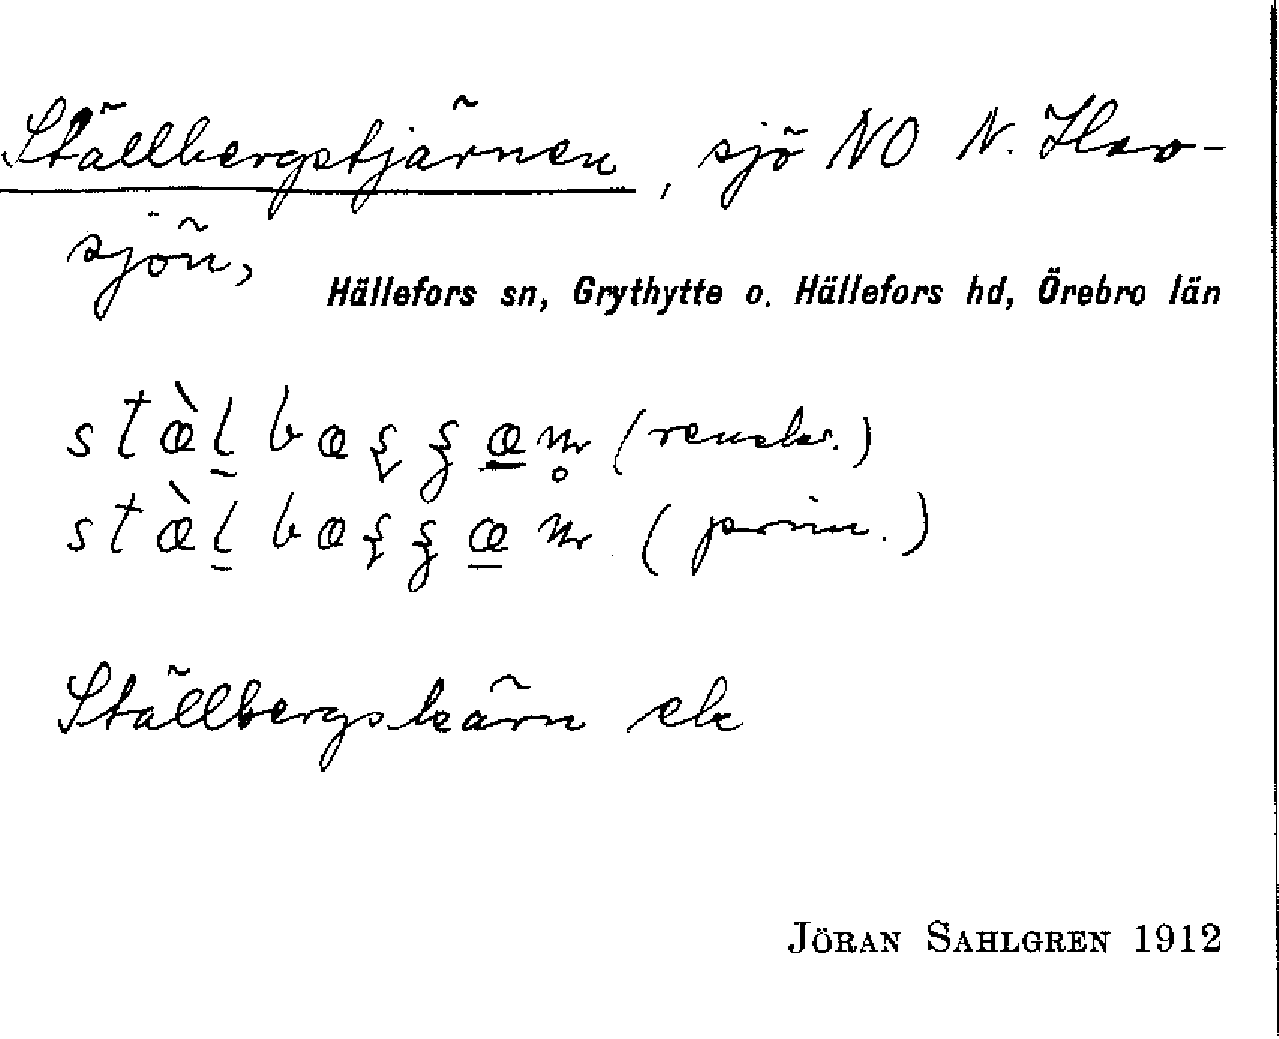 Ställbergstjärnen, sjö NO N. Hav-
sjön,
Hällefors sn, Grythytte o. Hällefors hd, Örebro län
stæ̀l̠bæʂʂæ̠n̥ (renskr.)
stæ̀l̠bæʂʂæ̠n (prim.)
Ställbergskärn ek
JÖRAN SAHLGREN 1912